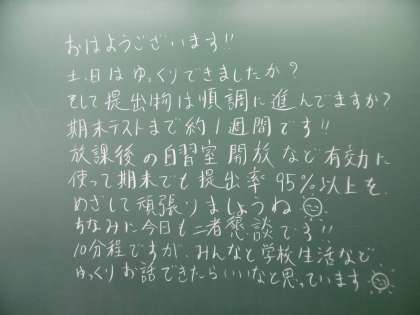 おはようございます!!
土、日はゆっくりできましたか?
そして提出物は順調に進んでますか?
期末テストまで約1週間です!!
放課後の自習室開放など有効に
使って期末でも提出率95%以上を
めざして頑張りましょうね
ちなみに今日も二者懇談です!!
10分程ですが、みんなと学校生活など
ゆっくりお話できたらいいなと思っています